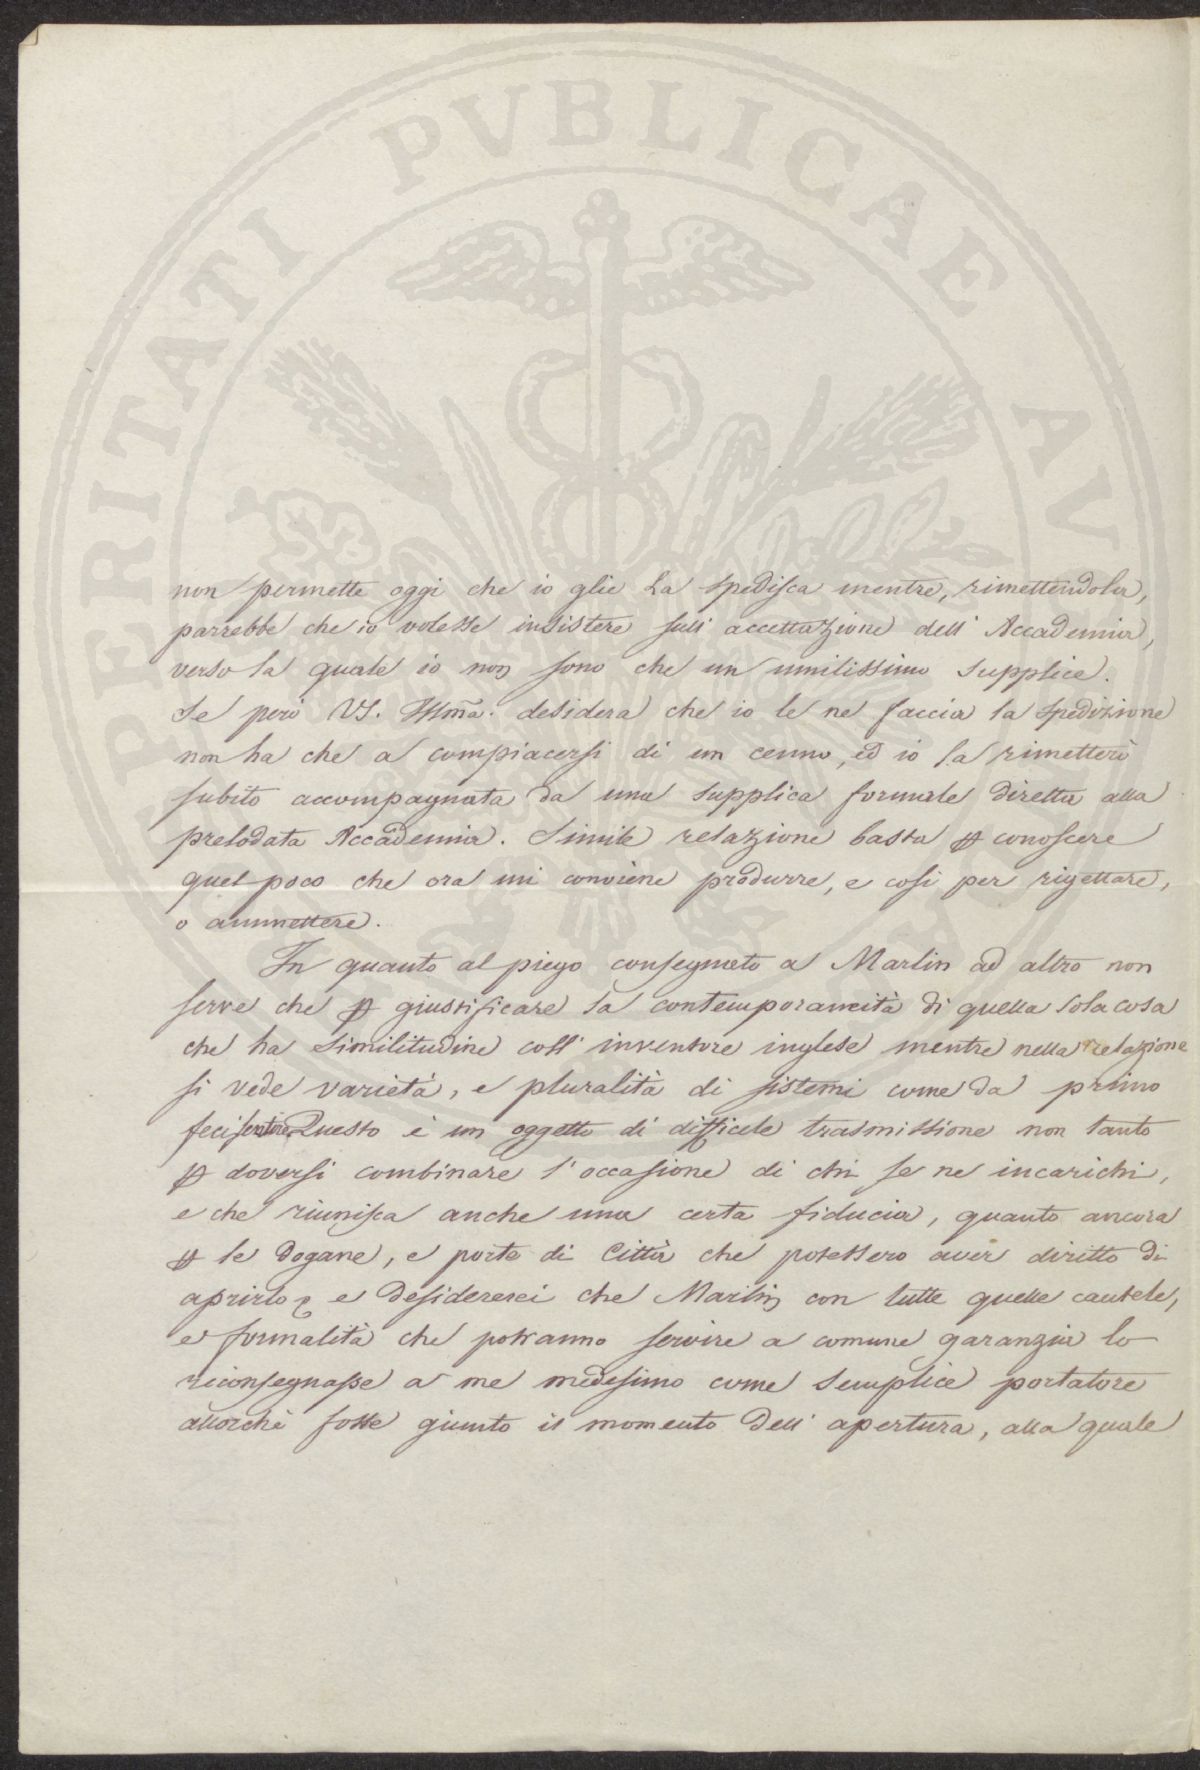 PROSPERITATI PVBLICAE AVGENDAE
non permette oggi che io glie La spedisca mentre, rimettendola,
parrebbe che io volesse insistere sull' accettazione dell' Accademia,
verso la quale io non sono che un umilissimo supplice.
Se però VS. Illma: desidera che io le ne faccia la spedizione
non ha che a compiacersi di un cenno, ed io la rimetterò
subito accompagnata da una supplica formale diretta alla
prelodata Accademia. Simile relazione basta ꝑ conoscere
quel poco che ora mi conviene produrre, e così per rigettare,
o ammettere.
In quanto al piego consegnato a Marlin ad altro non
serve che ꝑ giustificare la contemporaneità di quella sola cosa
che ha similitudine coll' inventore inglese mentre nella relazione
si vede varietà, e pluralità di sistemi come da primo
feci sentire Questo è un oggetto di difficile trasmissione non tanto
ꝑ doversi combinare l' occasione di chi se ne incarichi,
e che riunisca anche una certa fiducia, quanto ancora
ꝑ le Dogane, e porte di Città che potessero aver diritto di
aprirlo, e desidererei che Marlin con tutte quelle cautele,
e formalità che potranno servire a comune garanzia lo
riconsegnasse a me medesimo come semplice portatore
allorchè fosse giunto il momento dell' apertura, alla quale